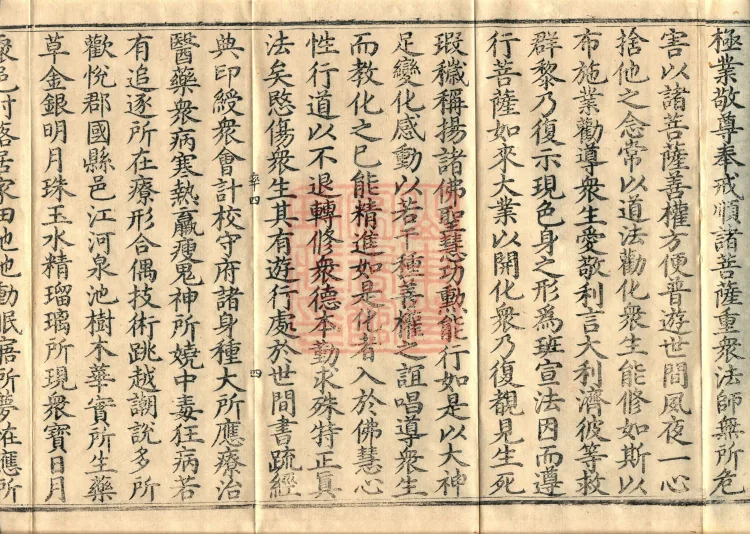 極業敬尊奉戒順諸菩薩重衆法師無所危
害以諸菩薩善權方便普遊世間夙夜一心
捨他之念常以道法勸化衆生能修如斯以
布施業勸導衆生愛敬利言大利濟彼等救
群黎乃復示現色身之形爲班宣法因而導
行菩薩如來大業以開化衆乃復覩見生死
瑕穢稱揚諸佛聖慧功勳能行如是以大神
足變化感動以若干種善權之誼唱導衆生
而教化之已能精進如是化者入於佛慧心
性行道以不退轉修衆德本勤求殊特正眞
法矣愍傷衆生其有遊行處於世間書䟽經
率四 四
典印綬衆會計校守府諸身種大所應療治
醫藥衆病寒熱羸瘦鬼神所嬈中毒狂病若
有追逐所在療形合偶技術跳越謿說多所
歡悅郡國縣邑江河泉池樹木華實所生藥
草金銀明月珠玉水精瑠璃所現衆寶日月
邑村落居家田地地動眠寤所夢在應所